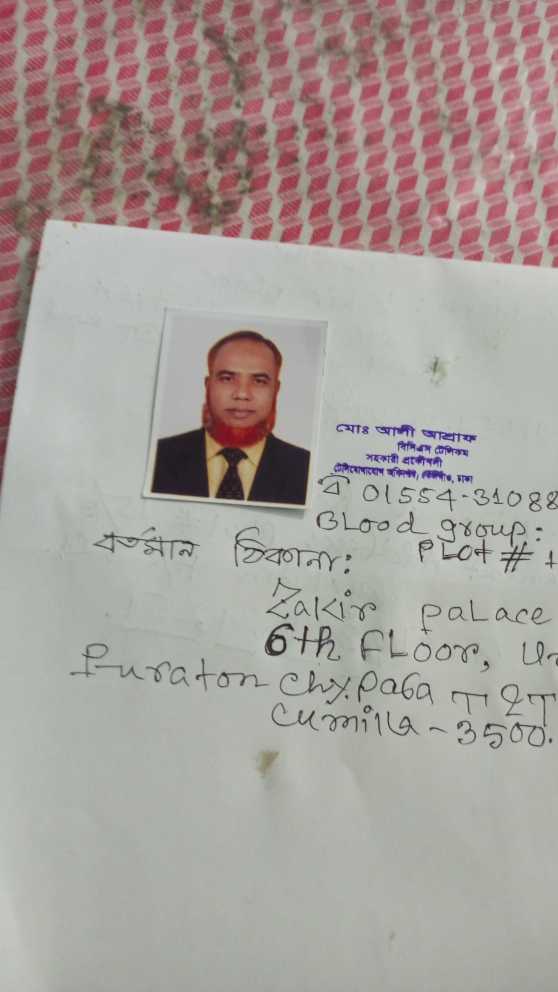 মোঃ আলী আশ্রাফ
বিসিএস টেলিকম
সহকারী প্রকৌশলী
টেলিযোগাযোগ অধিদপ্তর, ঢাকা
01554-31088
BLood group:
বর্তমান ঠিকানা: PLOT #
Zakir paLace
6th FLoor,
Puraton chy. Para T&T
cumilla-3500.